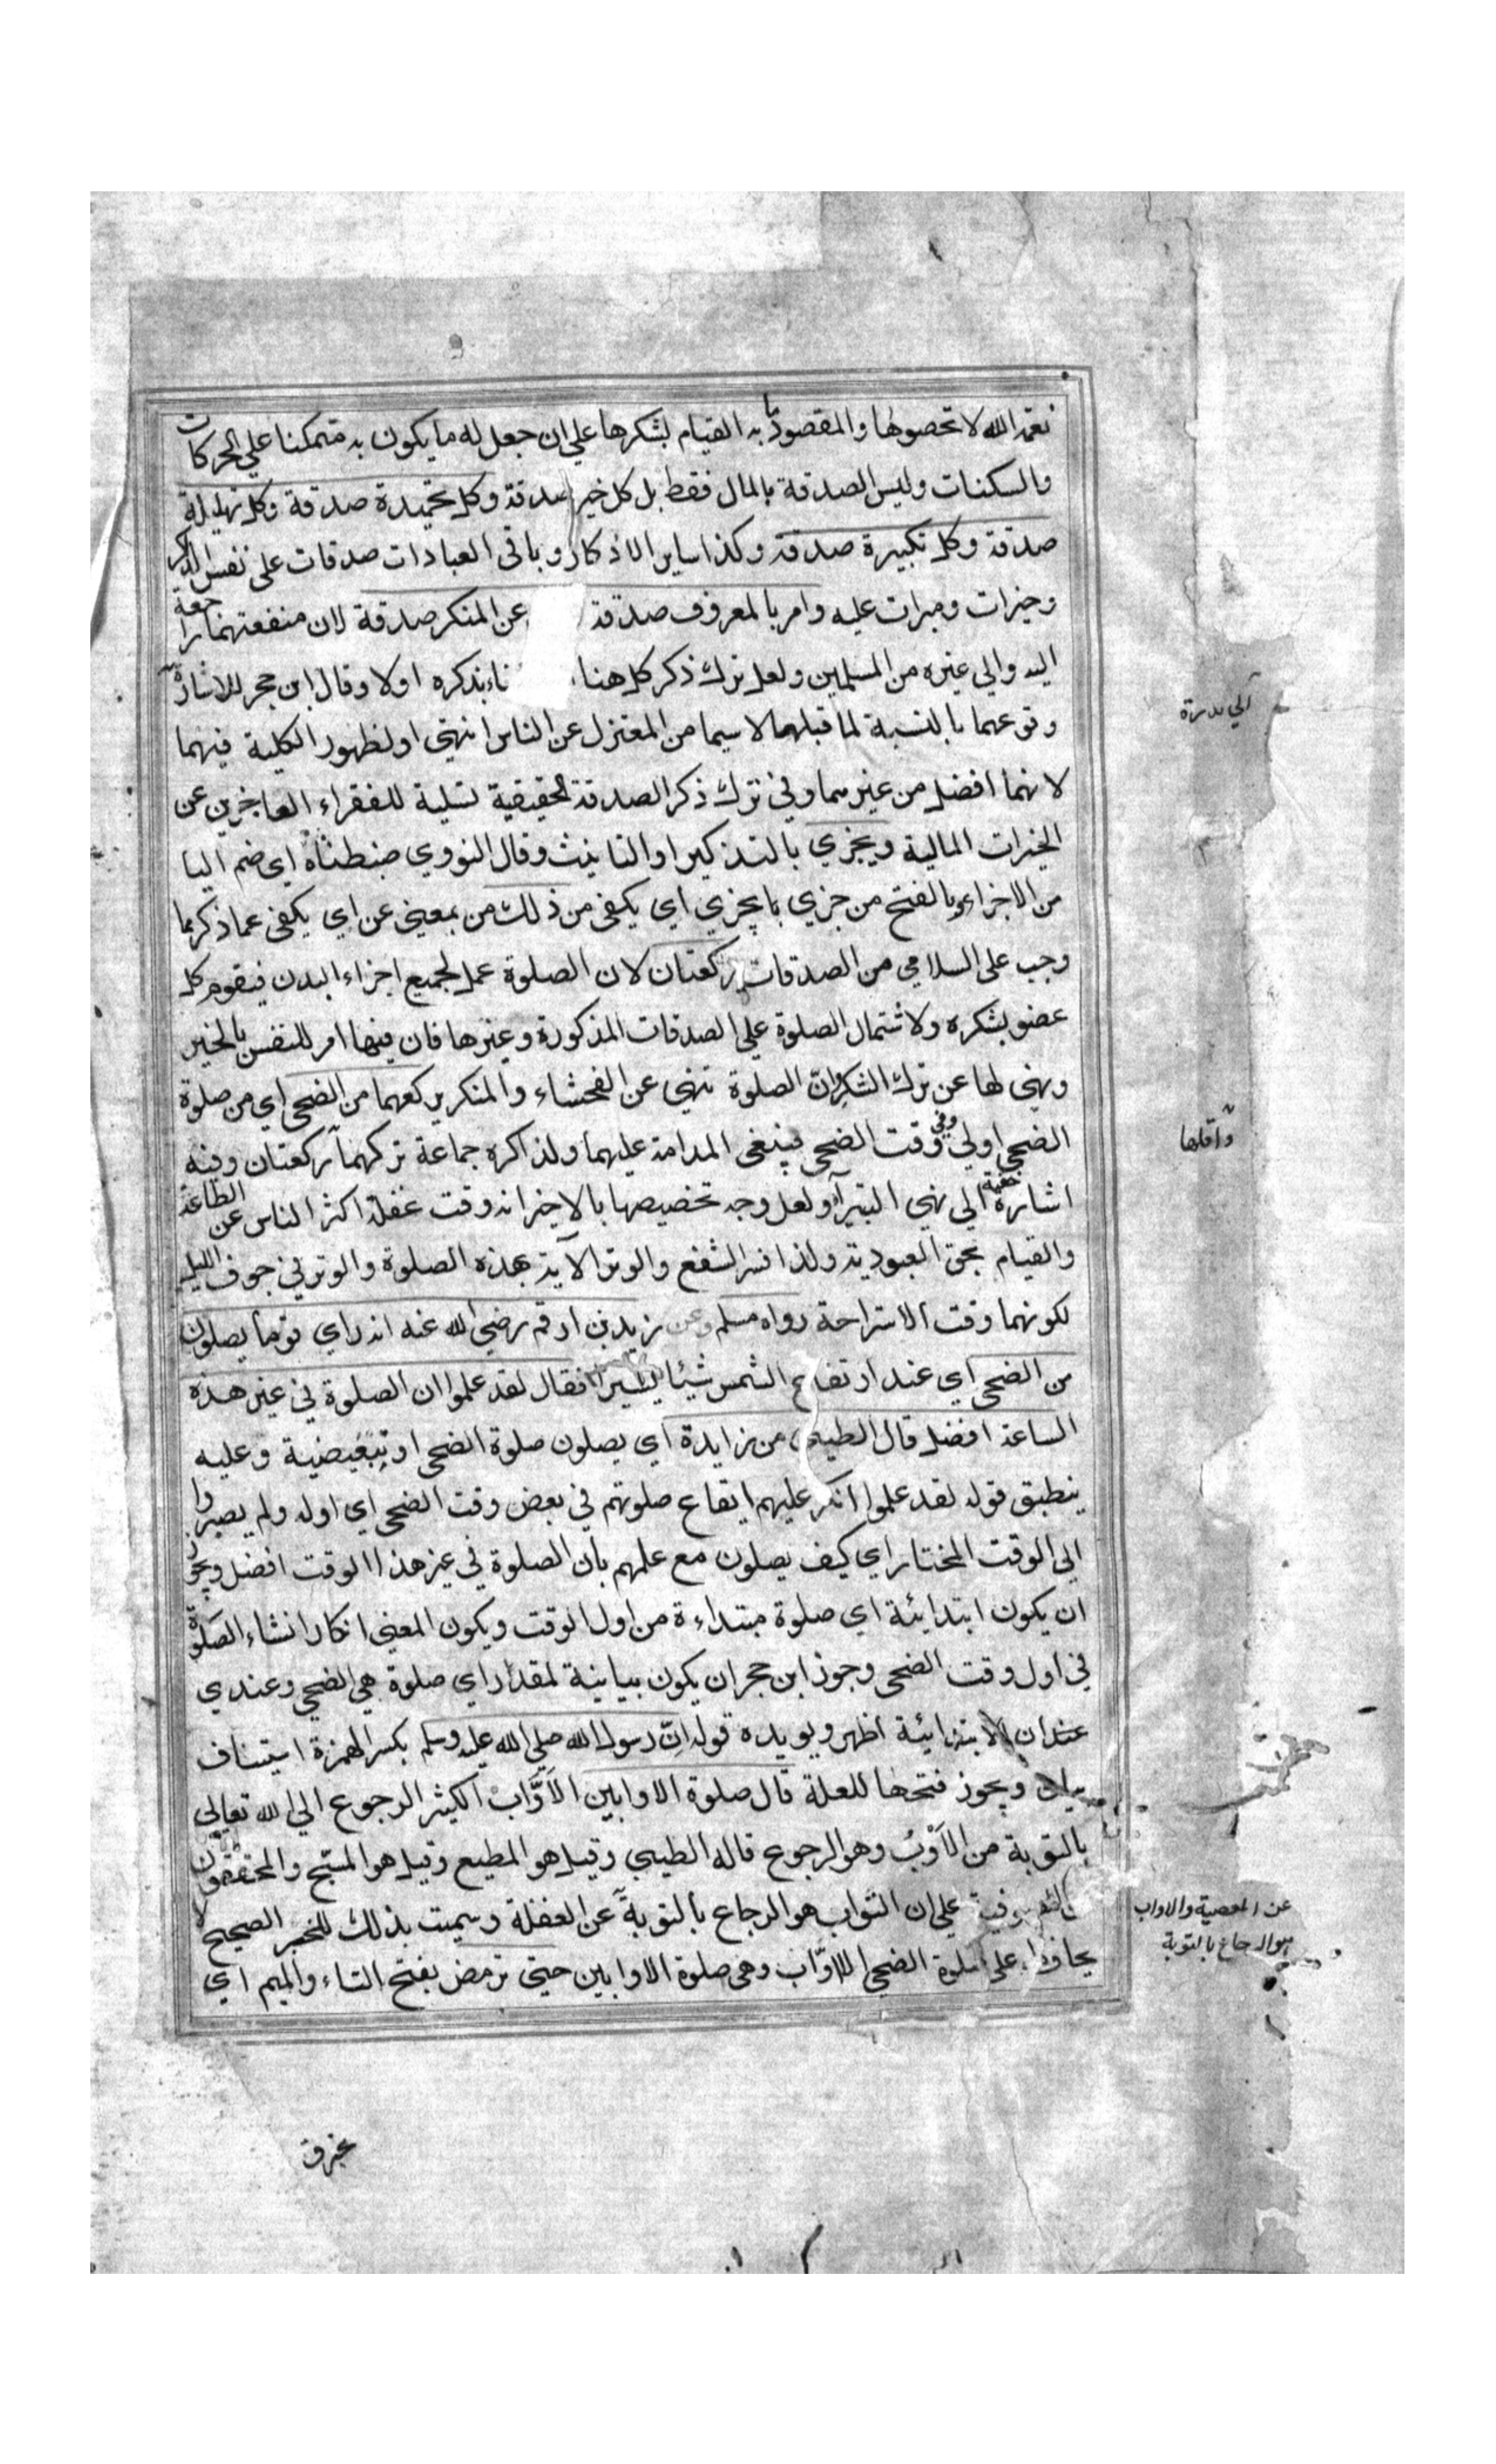 نعمة الله لا تحصوها والمقصود به القيام بشكرها على ان جعل له ما يكون به متمكنا على الحركات
والسكنات وليس الصدقة بالمال فقط بل كل خير صدقة وكل تحميدة صدقة وكل تهليلة
صدقة وكل تكبيرة صدقة وكذا ساير الاذكار وباقي العبادات صدقات على نفس الذاكر
وخيرات ومبرات عليه وامر بالمعروف صدقة عن المنكر صدقة لان منفعتهما راجعة
اليه والي غيره من المسلمين ولعل ترك ذكر كل هنا ناء بذكره اولا وقال ابن حجر للاشارة
وقوعهما بالنسبة لما قبلهما لا سيما من المعتزل عن الناس انتهى او لظهور الكلية فيهما
لانهما افضل من غيرهما وفي ترك ذكر الصدقة الحقيقية تسلية للفقراء العاجزين عن
الخيرات المالية ويجزي بالتذكير او التانيث وقال النووي ضبطناه اي ضم اليا
من الاجزاء وبالفتح من جزي يجزي اي يكفي من ذلك من بمعنى عن اي يكفي عما ذكر مما
وجب على السلامي من الصدقات ركعتان لان الصلوة عمل لجميع اجزاء البدن فيقوم كل
عضو بشكره ولاشتمال الصلوة على الصدقات المذكورة وغيرها فان فيها امر للنفس بالخير
ونهي لها عن ترك الشكر وان الصلوة تنهي عن الفحشاء والمنكر يركعهما من الضحى اي من صلوة
الضحى اولي وفي وقت الضحى فينبغى المدامة عليهما ولذا كره جماعة تركهما ركعتان وفيه
اشارة خفية الى نهي البتيراء ولعل وجه تخصيصها بالاخير انه وقت غفلة اكثر الناس عن الطاعة
والقيام بحق العبودية ولذا فسر الشفع والوتر الآية بهذه الصلوة والوتر في جوف الليل
لكونهما وقت الاستراحة رواه مسلم وعن زيد بن ارقم رضي الله عنه انه راي قوما يصلون
من الضحى اي عند ارتفاع الشمس شيئا يسيرا فقال لقد علموا ان الصلوة في غير هذه
الساعة افضل قال الطيبي من زايدة اي يصلون صلوة الضحى او تبعيضية وعليه
ينطبق قوله لقد علموا انكر عليهم ايقاع صلوتهم في بعض وقت الضحى اي اوله ولم يصبروا
الى الوقت المختار اي كيف يصلون مع علمهم بان الصلوة في غير هذا الوقت افضل ويجوز
ان يكون ابتدايئة اي صلوة مبتداءة من اول الوقت ويكون المعنى انكار انشاء الصلوة
في اول وقت الضحى وجوز ابن حجر ان يكون بيانية لمقدر اي صلوة هي الضحى وعندي
عند ان الابتدايئة اظهر ويويده قوله ان رسول الله صلى الله عليه وسلم بكسر الهمزة استيناف
بيان ويجوز فتحها للعلة قال صلوة الاوابين الاَوَّاب الكثير الرجوع الى الله تعالى
بالتوبة من الاَوْب وهو الرجوع قاله الطيبي وقيل هو المطيع وقيل هو المسبح والمحققون
على ان التواب هو الرجاع بالتوبة عن الغفلة وسميت بذلك للخبر الصحيح لا
يحافظ على صلوة الضحى الا اوّاب وهي صلوة الاوابين حتى ترمض بفتح التاء والميم اي
واقلها
عن المعصية والاواب
هو الرجاع بالتوبة